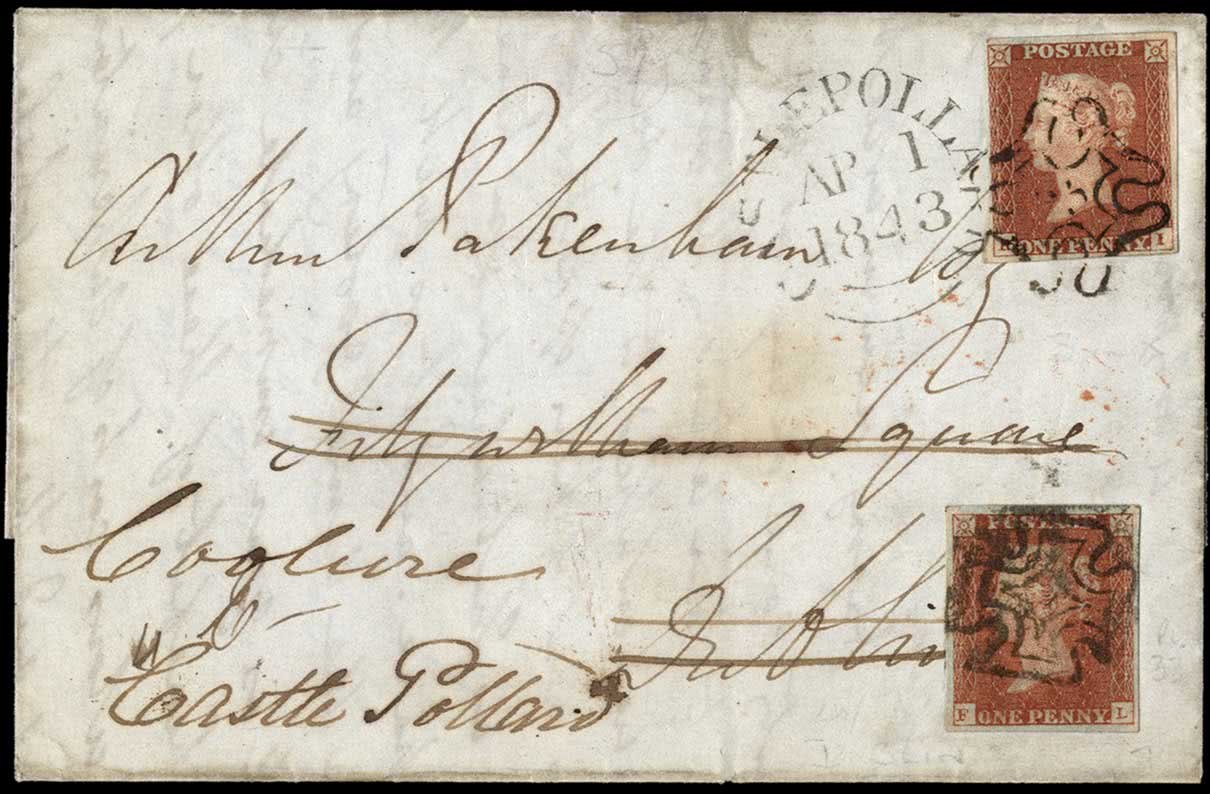 POSTAGE
CASTLEPOLLARD
AP 1
1843
ONE PENNY I
Arthur Pakenham Esq
Fitzwilliam Square
Dublin
Coolure
Castle Pollard
POSTAGE
F ONE PENNY L